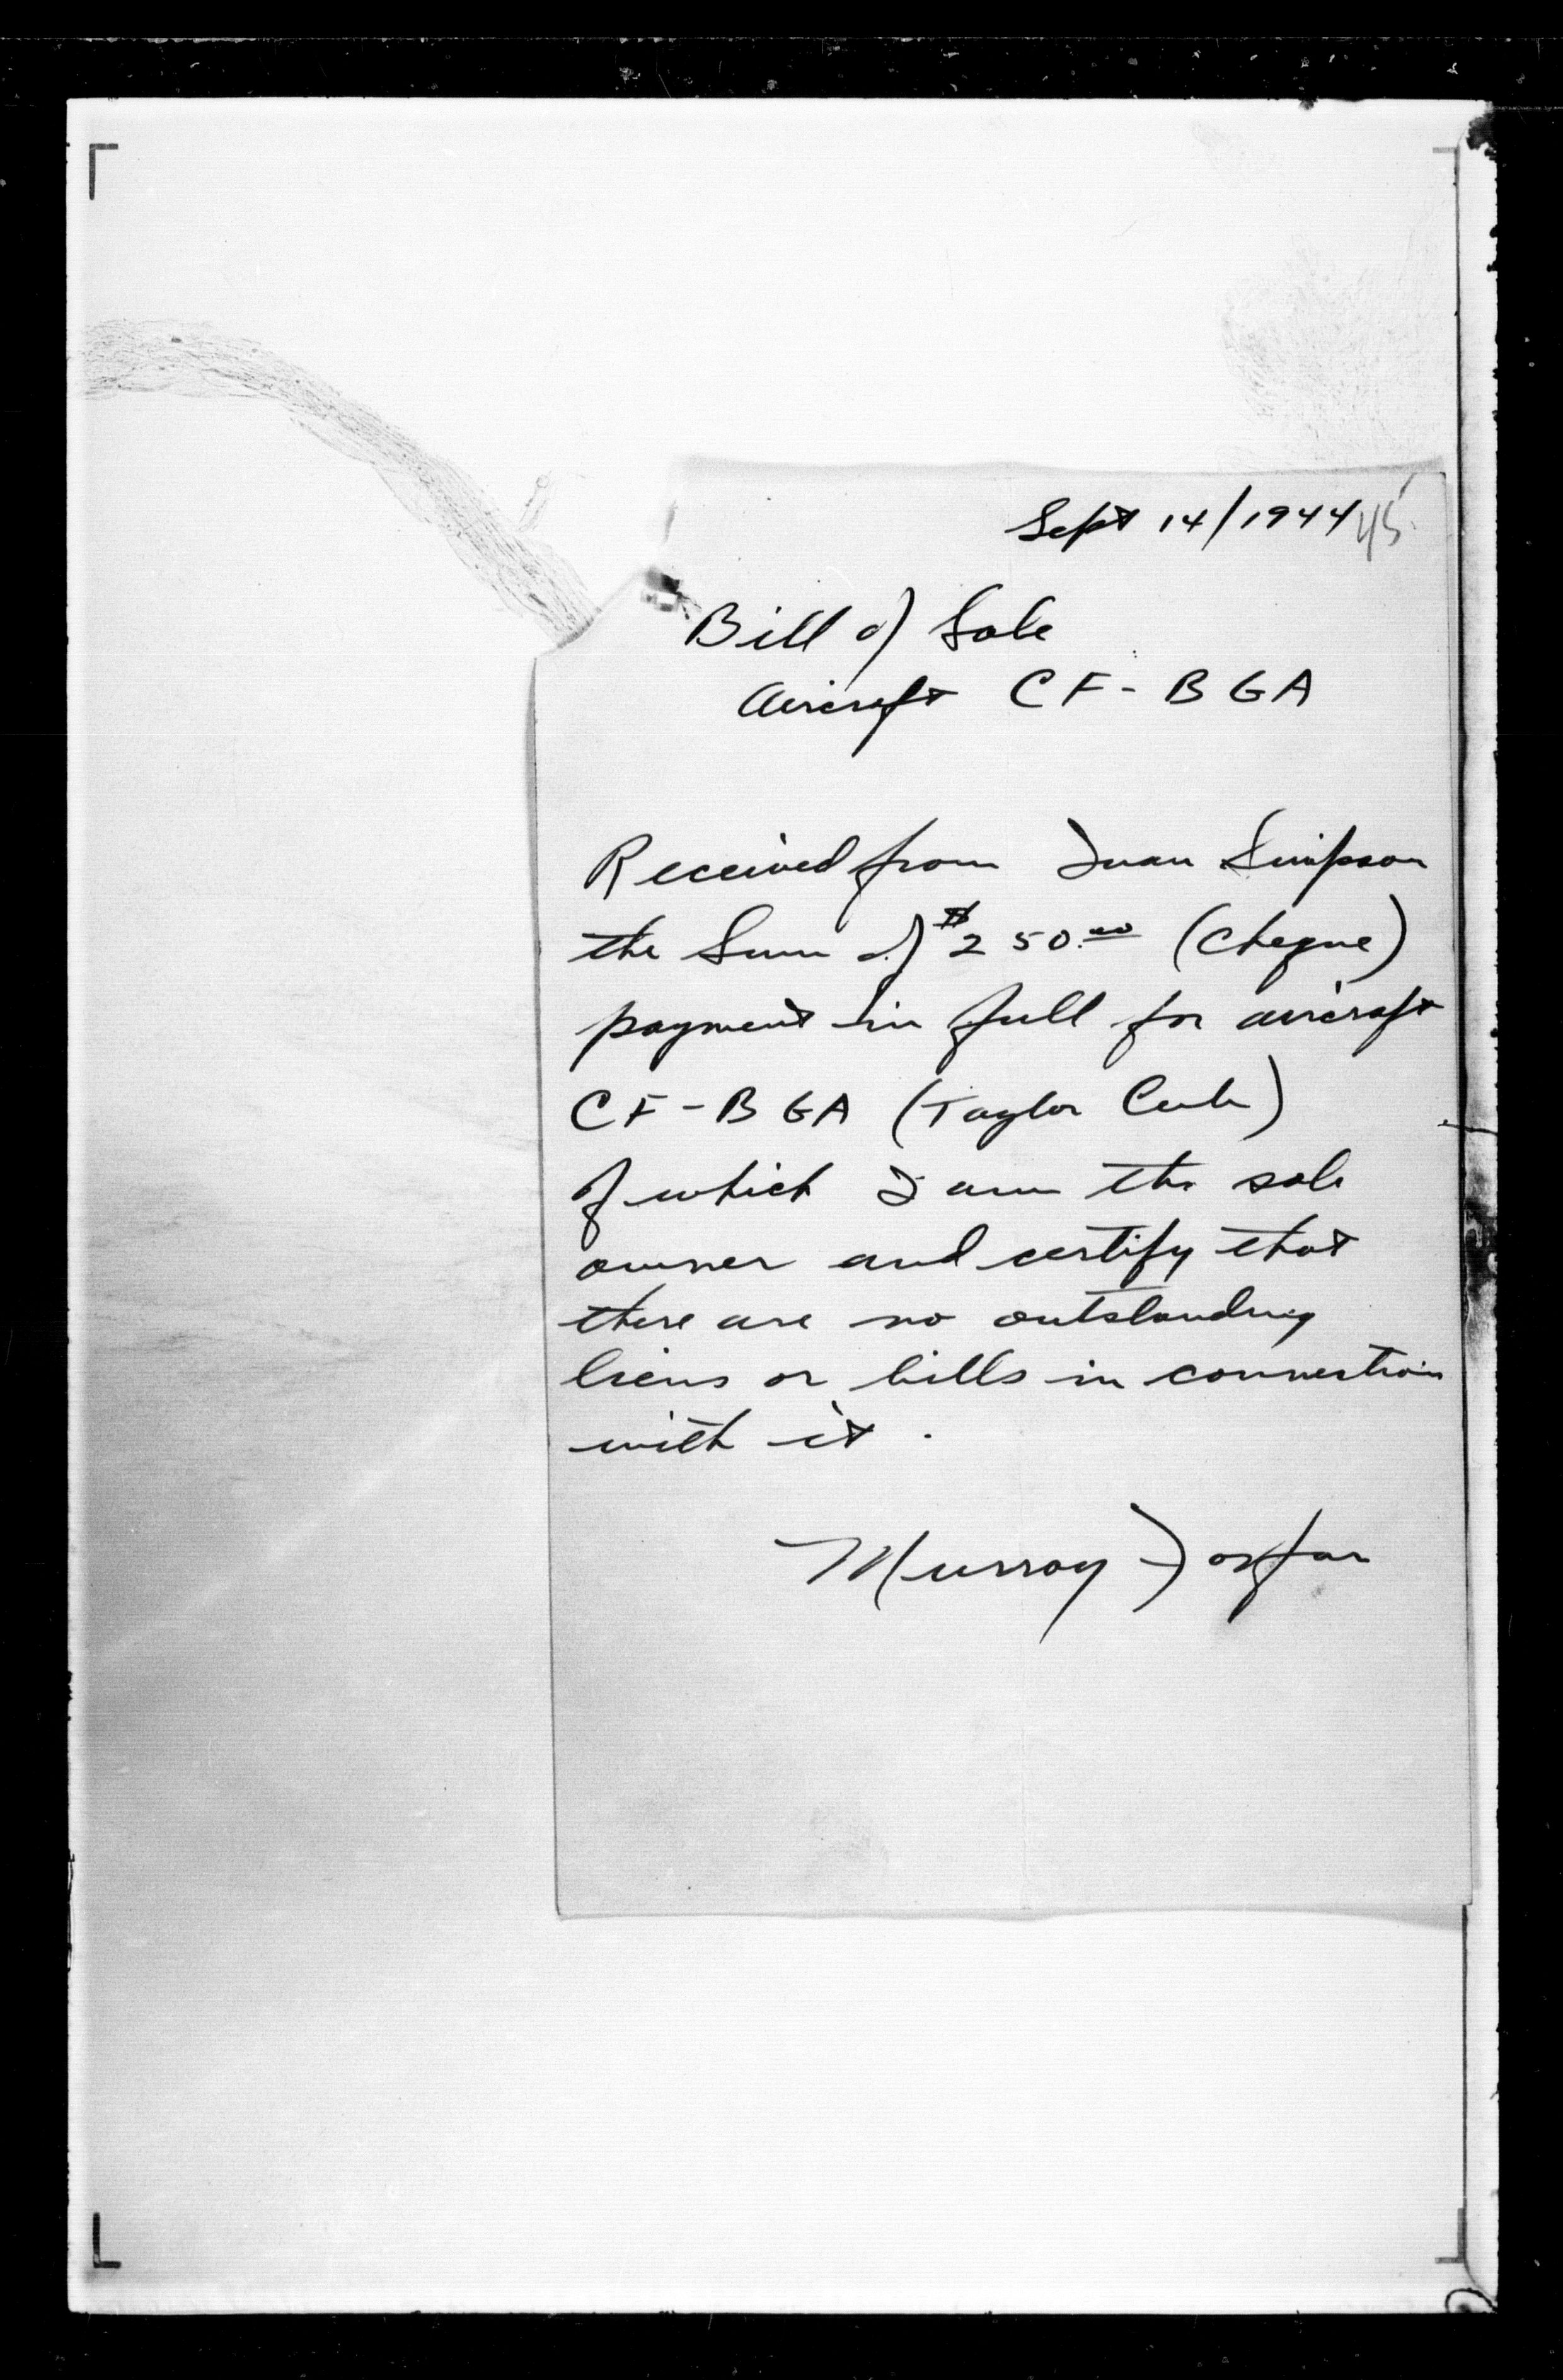 Sept 14/1944 45
Bill of Sale
Aircraft CF-BGA
Received from Ivan Simpson
the Sum of $250.00 (Cheque)
payment in full for aircraft
CF-BGA (Taylor Cub)
of which I am the sole
owner and certify that
there are no outstanding
liens or bills in connection
with it.
Murray